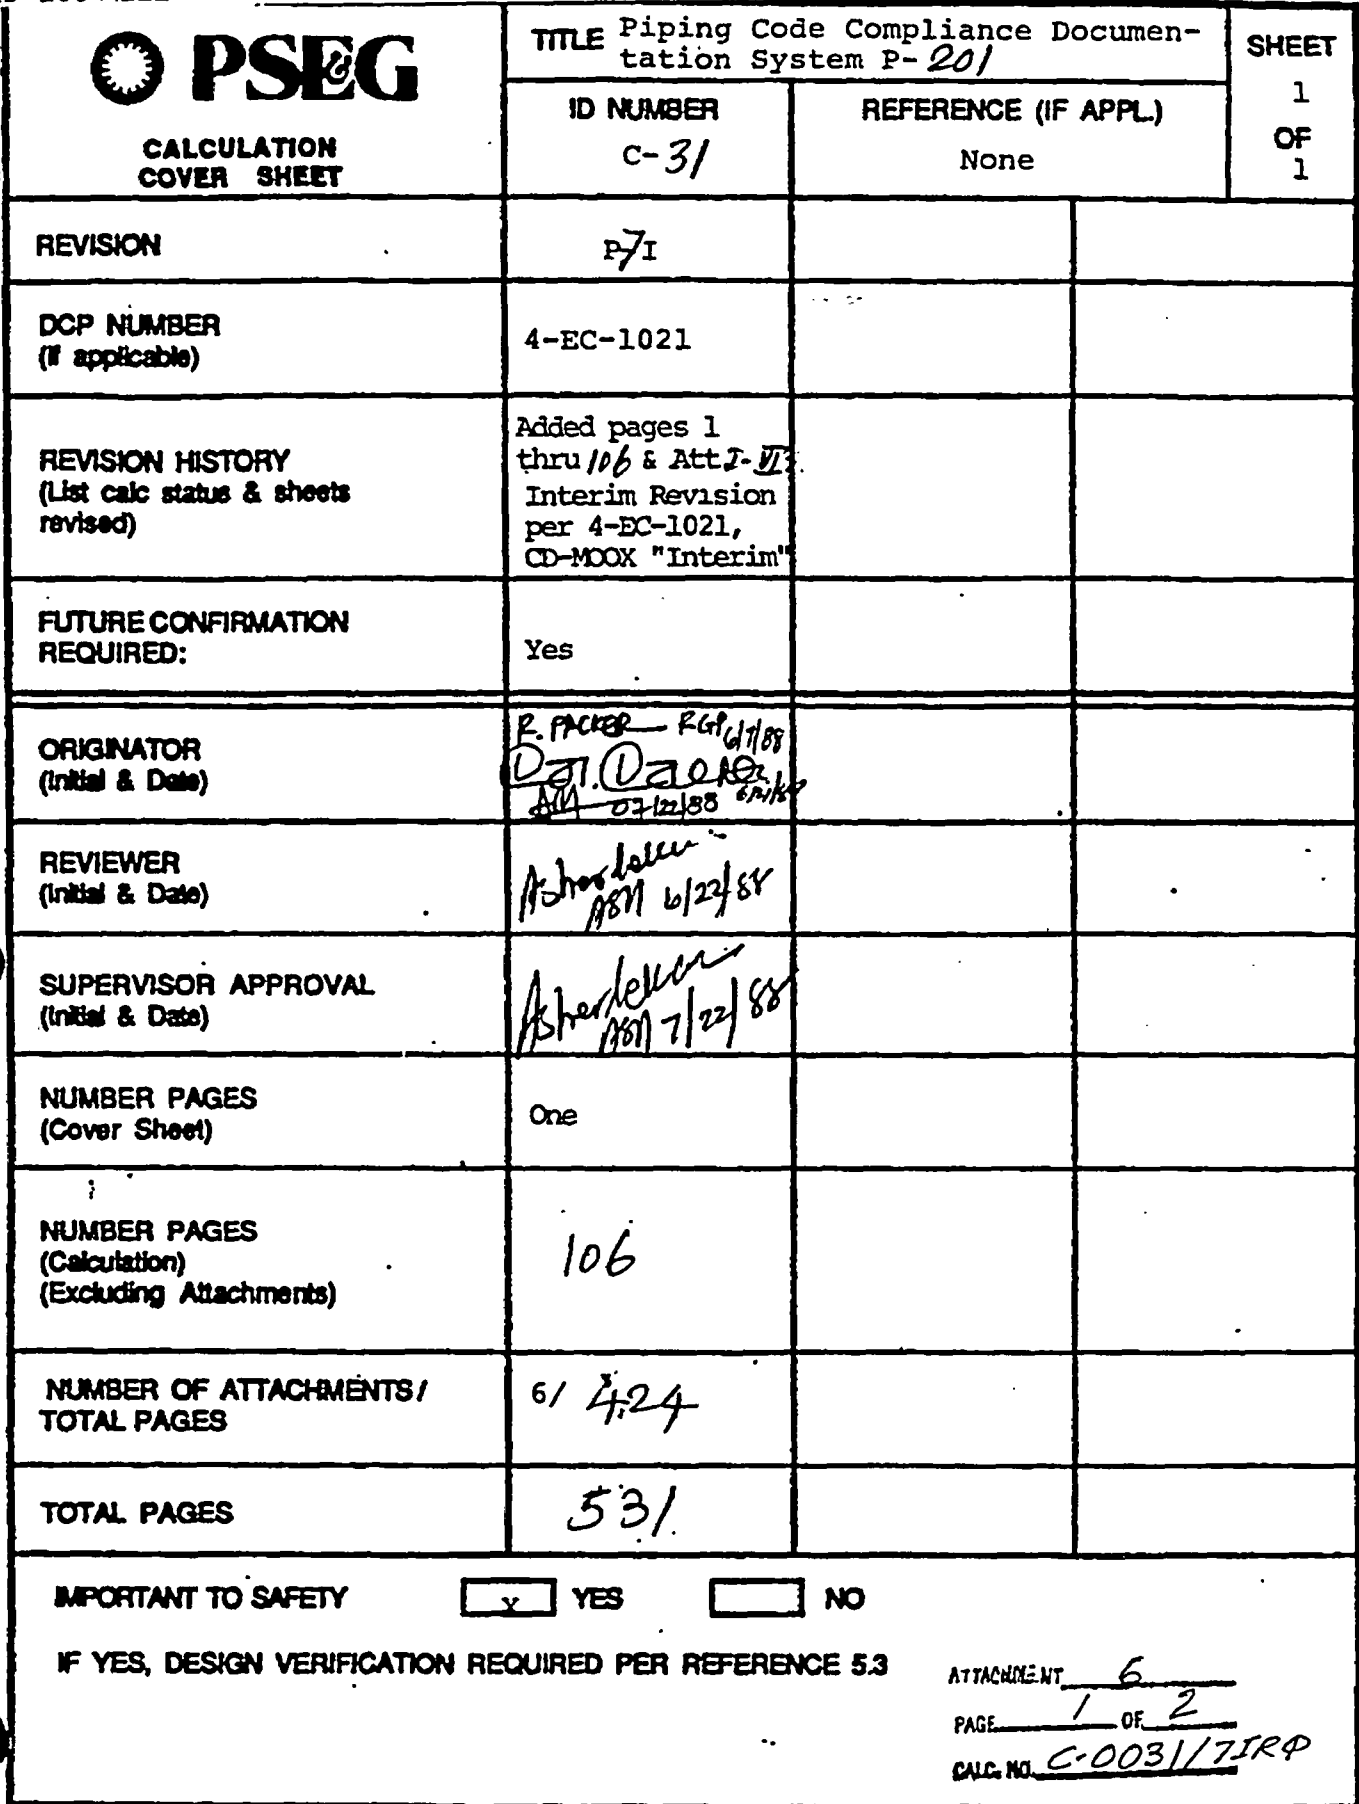 PSE&G
CALCULATION
COVER SHEET
TITLE Piping Code Compliance Documen-
tation System P-201
ID NUMBER
C-31
REFERENCE (IF APPL.)
None
SHEET
1
OF
1
REVISION
P7I
DCP NUMBER
(if applicable)
4-EC-1021
REVISION HISTORY
(List calc status & sheets
revised)
Added pages 1
thru 106 & Att I-VI
Interim Revision
per 4-EC-1021,
CD-MOOX "Interim"
FUTURE CONFIRMATION
REQUIRED:
Yes
ORIGINATOR
(Initial & Date)
R. PACKER RGP 6/7/88
07/22/88
REVIEWER
(Initial & Date)
ASM 6/22/88
SUPERVISOR APPROVAL
(Initial & Date)
ASM 7/22/88
NUMBER PAGES
(Cover Sheet)
One
NUMBER PAGES
(Calculation)
(Excluding Attachments)
106
NUMBER OF ATTACHMENTS/
TOTAL PAGES
6/ 424
TOTAL PAGES
531
IMPORTANT TO SAFETY
x YES
NO
IF YES, DESIGN VERIFICATION REQUIRED PER REFERENCE 5.3
ATTACHMENT 6
PAGE 1 OF 2
CALC. NO. C-0031/7IRΦ